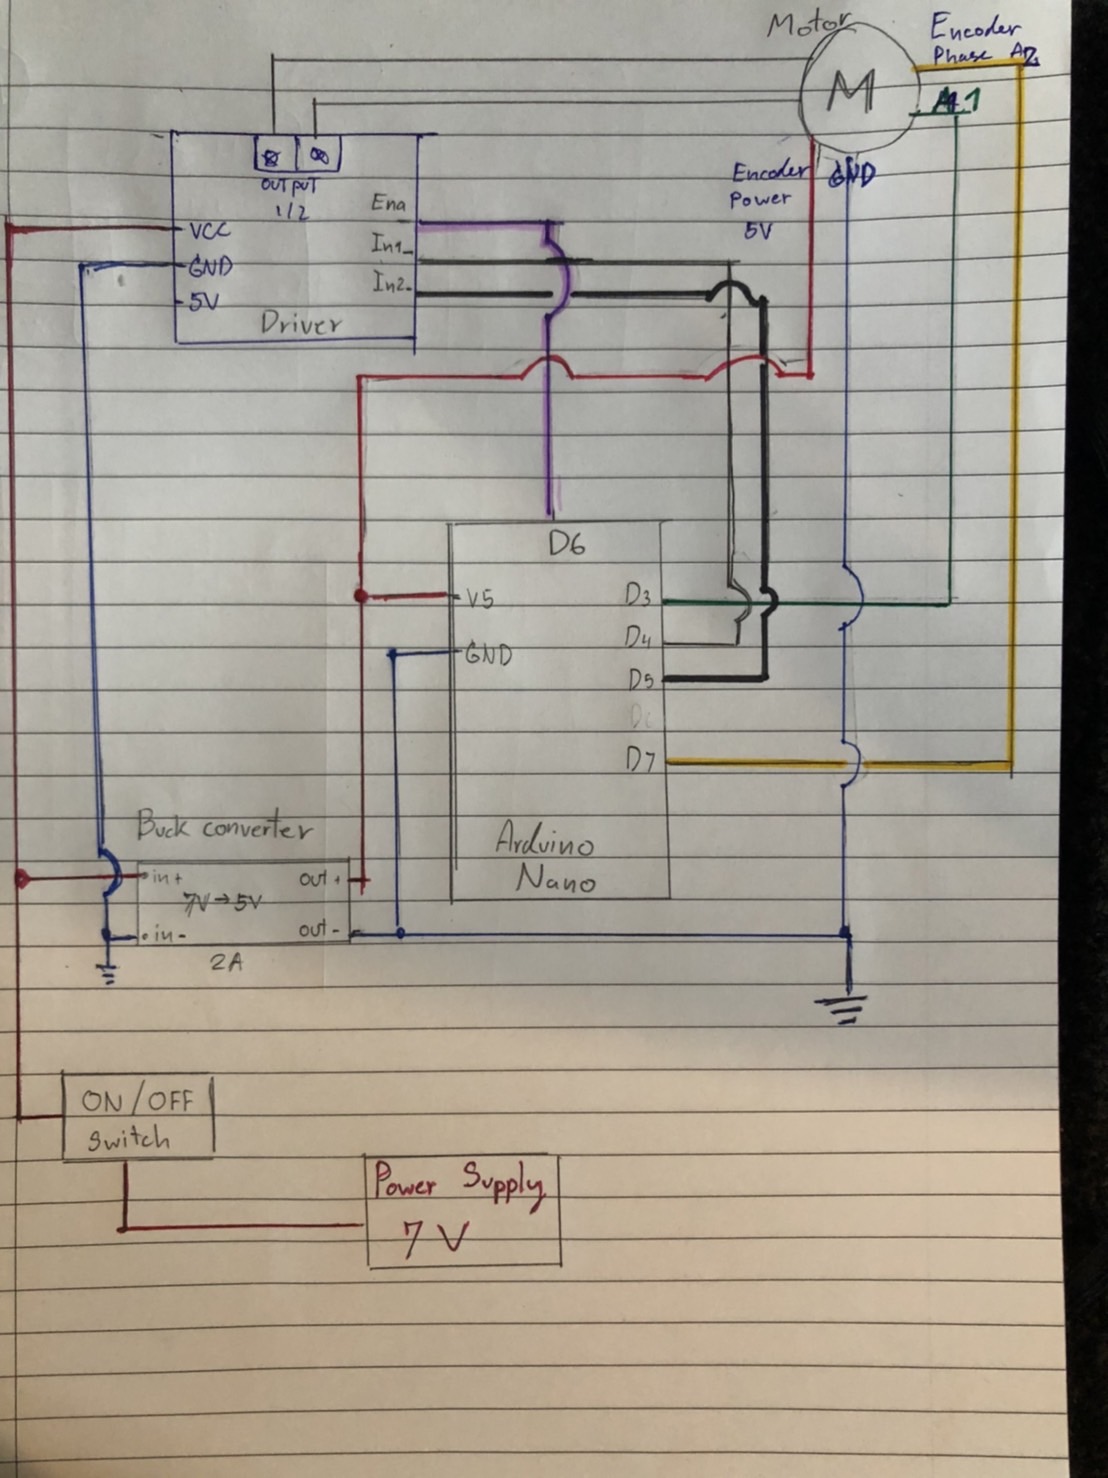 Motor
Encoder
Phase A2
M
A1
OUTPUT
1/2
Ena
Encoder
Power
5V
GND
VCC
In1
GND
In2
5V
Driver
D6
V5
D3
D4
GND
D5
D7
Buck converter
Arduino
Nano
in+
out+
7V→5V
in-
out-
2A
ON/OFF
Switch
Power Supply
7V